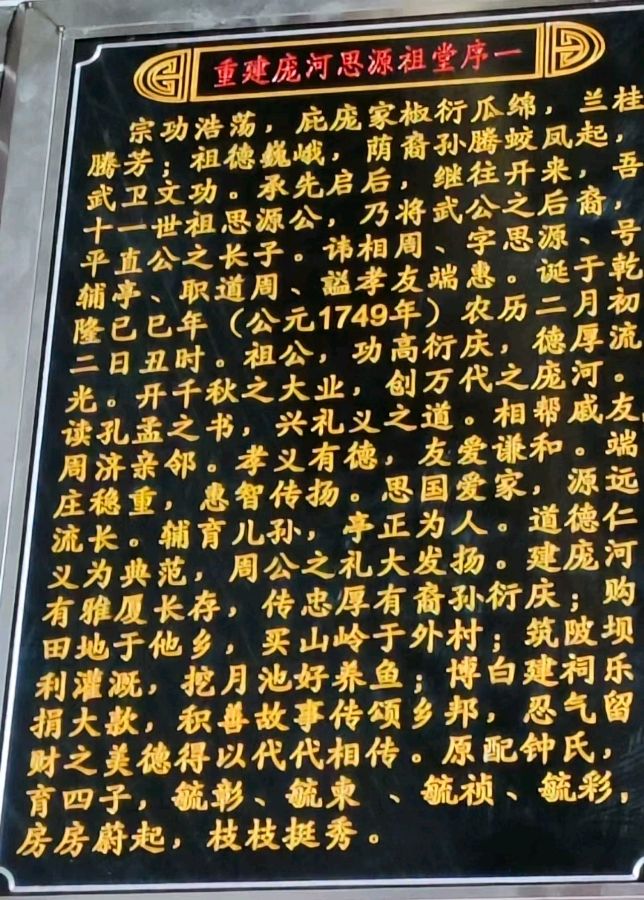 重建庞河思源祖堂序一
宗功浩荡，庇庞家椒衍瓜绵，兰桂
腾芳；祖德巍峨，荫裔孙腾蛟凤起，
武卫文功。承先启后，继往开来，吾
十一世祖思源公，乃将武公之后裔，
平直公之长子。讳相周、字思源、号
辅亭、职道周、謚孝友端惠。诞于乾
隆已巳年（公元1749年）农历二月初
二日丑时。祖公，功高衍庆，德厚流
光。开千秋之大业，创万代之庞河。
读孔孟之书，兴礼义之道。相帮戚友
周济亲邻。孝义有德，友爱谦和。端
庄稳重，惠智传扬。思国爱家，源远
流长。辅育儿孙，亭正为人。道德仁
义为典范，周公之礼大发扬。建庞河
有雅厦长存，传忠厚有裔孙衍庆；购
田地于他乡，买山岭于外村；筑陂坝
利灌溉，挖月池好养鱼；博白建祠乐
捐大款，积善故事传颂乡邦，忍气留
财之美德得以代代相传。原配钟氏，
育四子，毓彰、毓柬、毓祯、毓彩，
房房蔚起，枝枝挺秀。